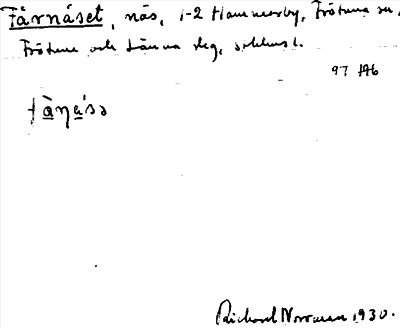 Tärnäset, näs, 1-2 Hammarby, Frötuna sn,
Frötuna och Länna slg, Sthlms l.
97 146
tàŋa'sə
Richard Norrman 1930.